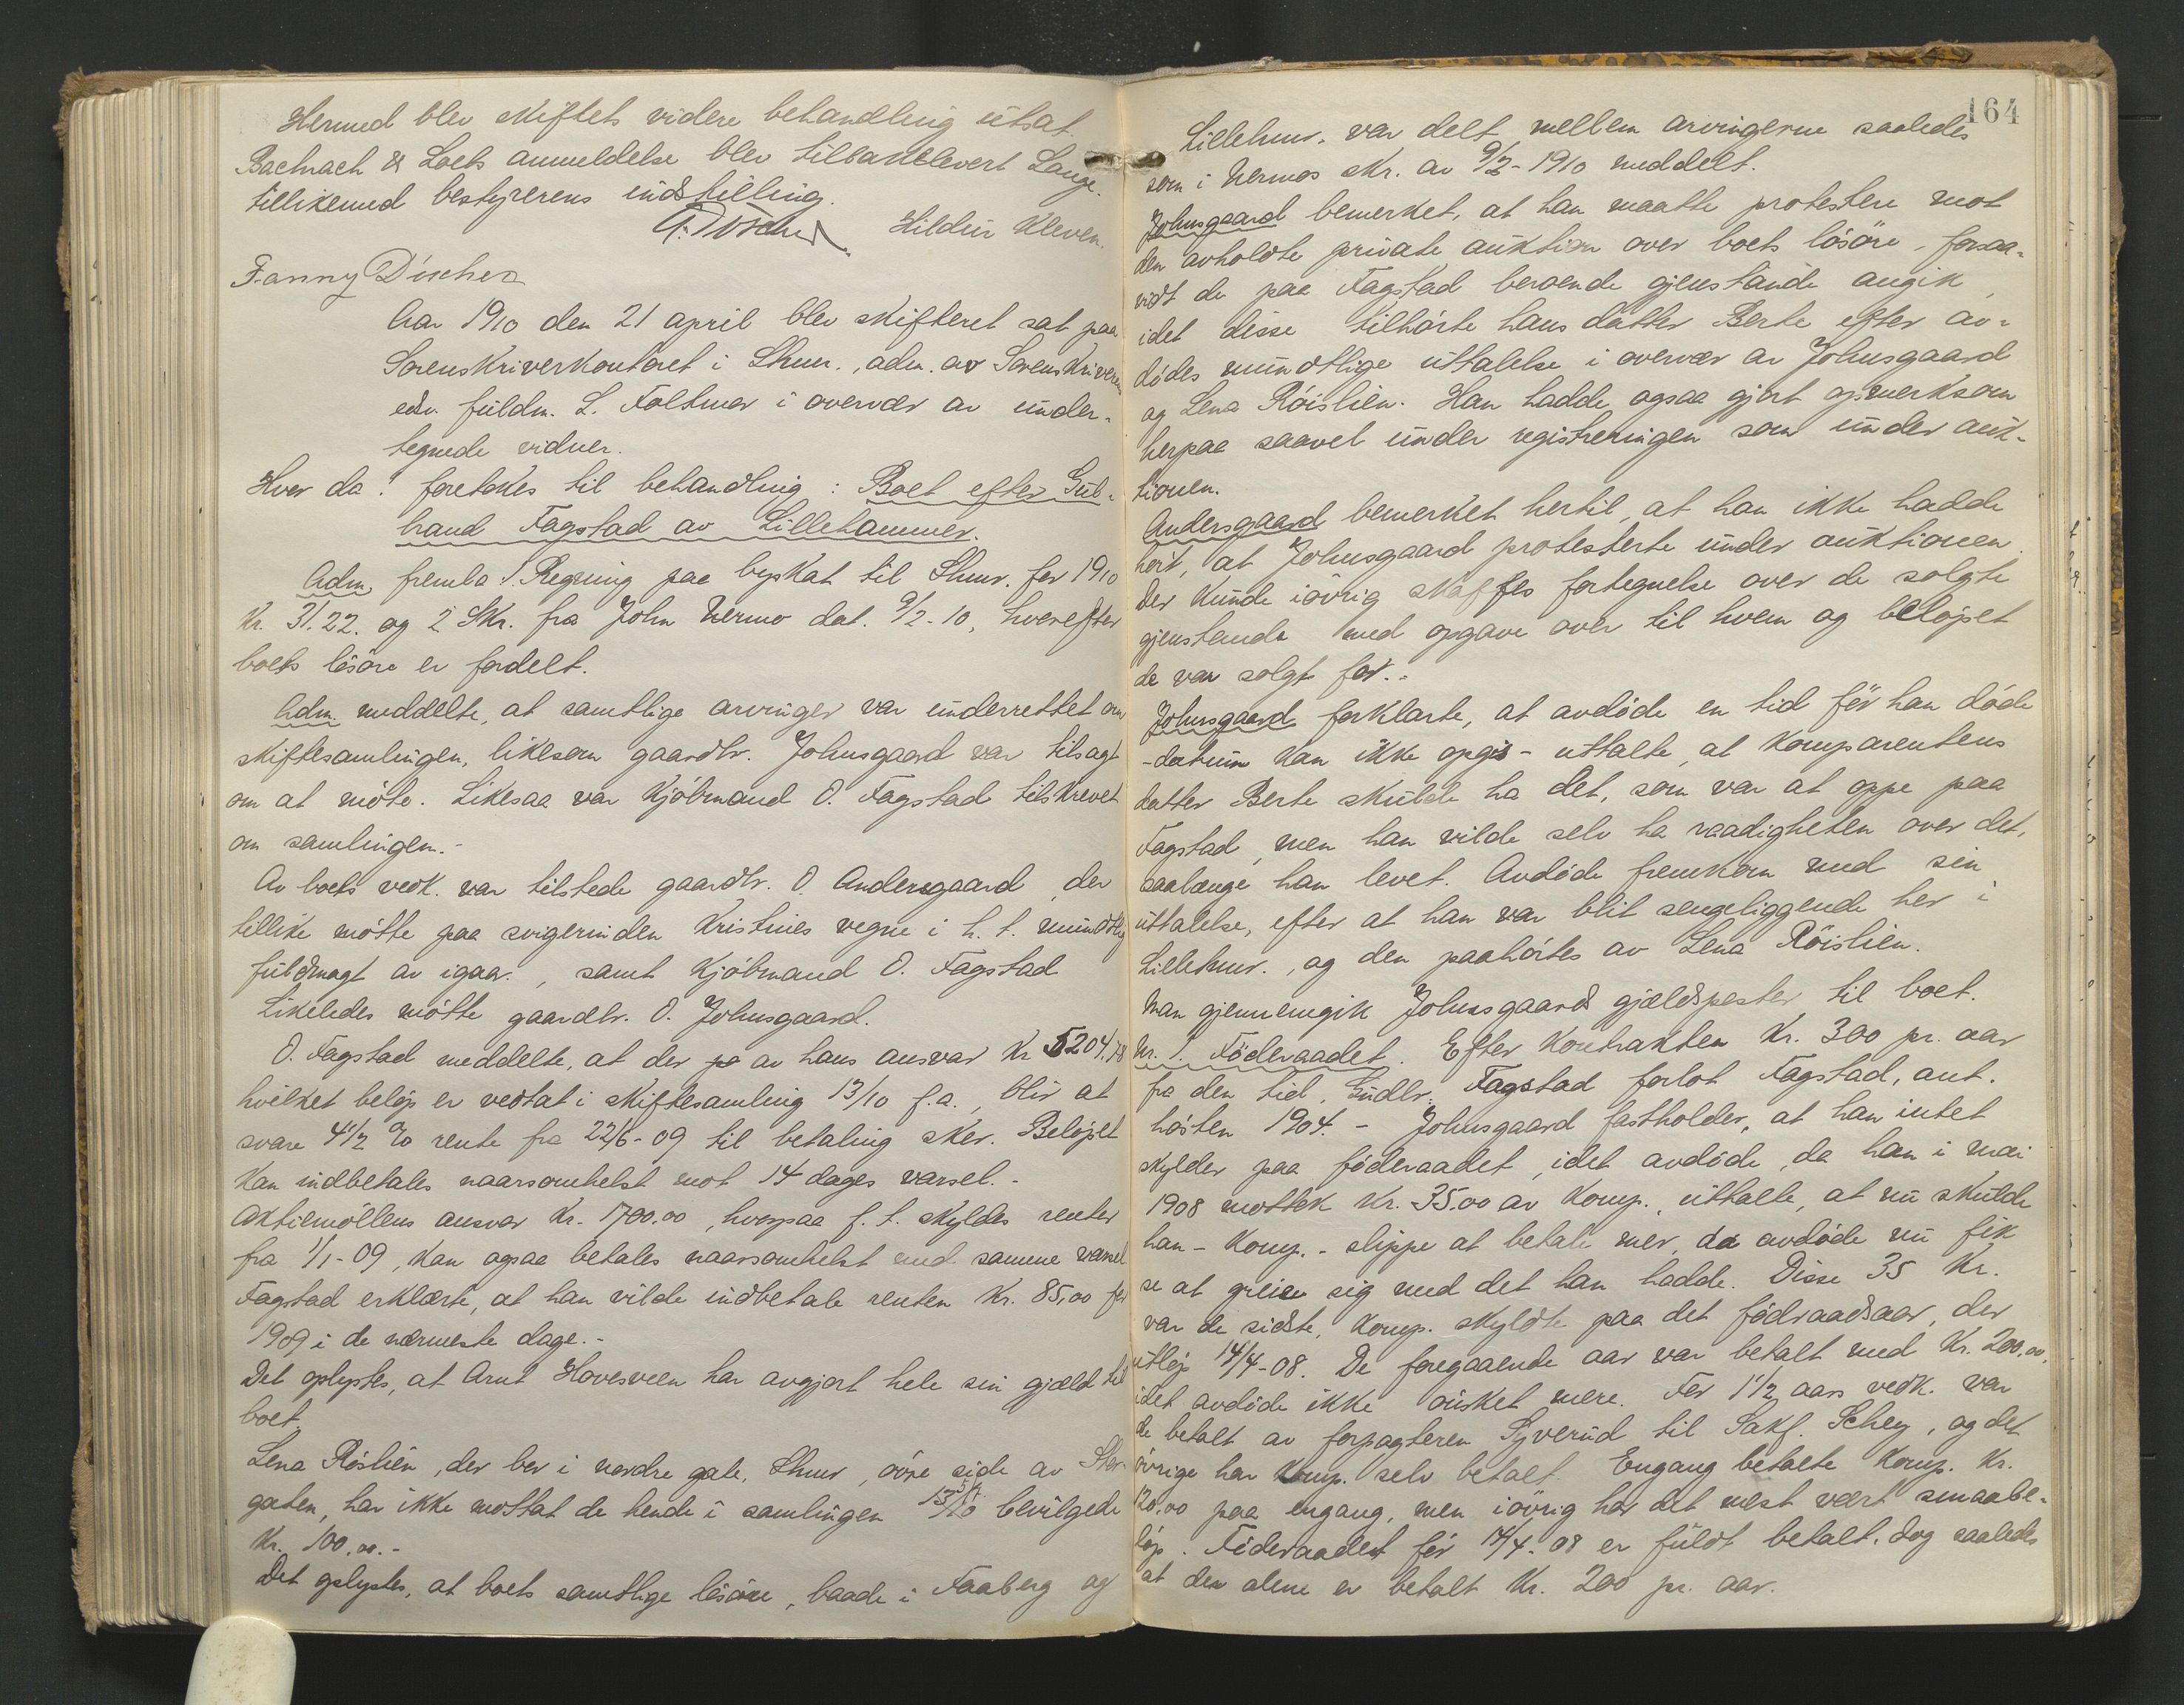 Hermed blev skiftets videre behandling utsat.
Bachrach & Loebs anmeldelse blev tilbakelevert Lange.
tillikemed bestyrerens indstilling.
Hildur Kleven.
Fanny Discher
Aar 1910 den 21 april blev skifteret sat paa
Sorenskriverkontoret i Lhmr., adm. av Sorenskriveren
edsv. fuldm. L. Foltmar i overvær av under-
tegnede vidner.
Hvor da: foretokes til behandling: Boet efter Gul-
brand Fagstad av Lillehammer.
Adm. fremla 1. Regning paa byskat til Lhmr. for 1910
Kr. 31.22. og 2 Skr. fra John Nermo dat. 9/2-10, hvorefter
boets løsøre er fordelt.
Adm. meddelte, at samtlige arvinger var underrettet om
skiftesamlingen, likesom gaardbr. Johnsgaard var tilsagt
om at møte. Likesaa var kjøbmand O. Fagstad tilskrevet
om samlingen.-
Av boets vedk. var tilstede gaardbr. O. Andersgaard, der
tillike møtte paa svigerinden Kristines vegne i h. t. mundtlig
fuldmagt av igaar., samt kjøbmand O. Fagstad
Likeledes møtte gaardbr. O. Johnsgaard.
O. Fagstad meddelte, at der pa av hans ansvar Kr 5204.78
hvilket beløp er vedtat i skiftesamling 13/10 f.a., blir at
svare 4 1/2 % rente fra 22/6-09 til betaling sker. Beløpet
kan indbetales naarsomhelst mot 14 dages varsel.-
Aktiemøllens ansvar Kr. 1700.00, hvorpaa f. t. skyldes renter
fra 1/1-09, kan ogsaa betales naarsomhelst med samme varsel
Fagstad erklærte, at han vilde indbetale renten Kr. 85,00 for
1909 i de nærmeste dage.-
Det oplystes, at Arnt Hovesveen har avgjort hele sin gjæld til
boet.
Lena Røslien, der bor i nordre gate, Lhmr, øvre side av Stor-
gaten, har ikke mottat de hende i samlingen 13/10 bevilgede
Kr. 100.00.-
Det oplystes, at boets samtlige løsøre, baade i Faaberg og
164
Lillehmr. var delt mellem arvingerne saaledes
som i Nermos skr. av 9/2-1910 meddelt.
Johnsgaard bemerket, at han maatte protestere mot
den avholdte private auktion over boets løsøre, forsaa-
vidt de paa Fagstad beroende gjenstande angik,
idet disse tilhørte hans datter Berte efter av-
dødes mundtlige uttalelse i overvær av Johnsgaard
og Lena Röislien. Han hadde ogsaa gjort opmerksom
herpaa saavel under registreringen som under auk-
tionen.
Andersgaard bemerket hertil, at han ikke hadde
hört, at Johnsgaard protesterte under auktionen.
Der kunde iøvrig skaffes fortegnelse over de solgte
gjenstande med opgave over til hvem og beløpet
de var solgt for.-
Johnsgaard forklarte, at avdøde en tid før han døde
-datum kan ikke opgis- uttalte, at komparentens
datter Berte skulde ha det, som var at oppe paa
Fagstad, men han vilde selv ha raadigheten over det,
saalænge han levet. Avdøde fremkom med sin
uttalelse, efter at han var blit sengeliggende her i
Lillehmr., og den paahörtes av Lena Röislien.
Man gjennemgik Johnsgaards gjældsposter til boet.
Nr. 1. Föderaadet. Efter kontrakten Kr. 300 pr. aar
fra den tid, Gudbr. Fagstad forlot Fagstad, ant.
høsten 1904. - Johnsgaard fastholder, at han intet
skylder paa föderaadet, idet avdøde, da han i mai
1908 mottok Kr. 35.00 av Komp., uttalte, at nu skulde
han - Komp. - slippe at betale mer, da avdøde nu fik
se at greie sig med det han hadde. Disse 35 Kr.
var de sidste, Komp. skyldte paa det fødraadsaar, der
utløp 14/4-08. De foregaaende aar var betalt med Kr. 200.00,
idet avdøde ikke ønsket mere. For 1 1/2 aars vedk. var
de betalt av forpagteren Syverud til Sakf. Schey, og det
øvrige har Komp. selv betalt. Engang betalte Komp. Kr.
120.00 paa engang, men iøvrig har det mest vært smaabe-
løp. Föderaadet før 14/4-08 er fuldt betalt, dog saaledes
at den alene er betalt Kr. 200 pr. aar.